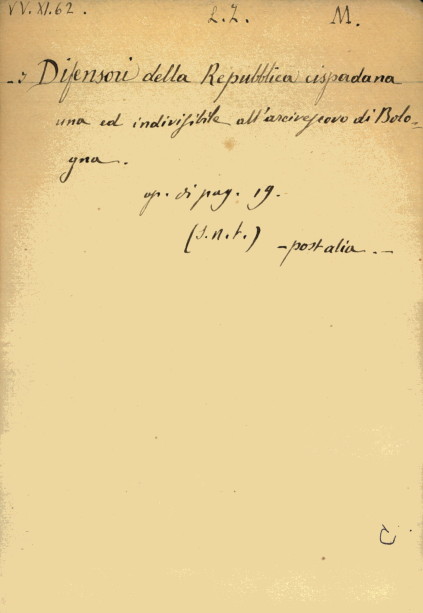 VV. XI. 62. L. Z. M.
Difensori della Repubblica cispadana
una ed indivisibile all'arcivescovo di Bolo-
gna.
op. di pag. 19.
(s. n. t.) - post alia. -